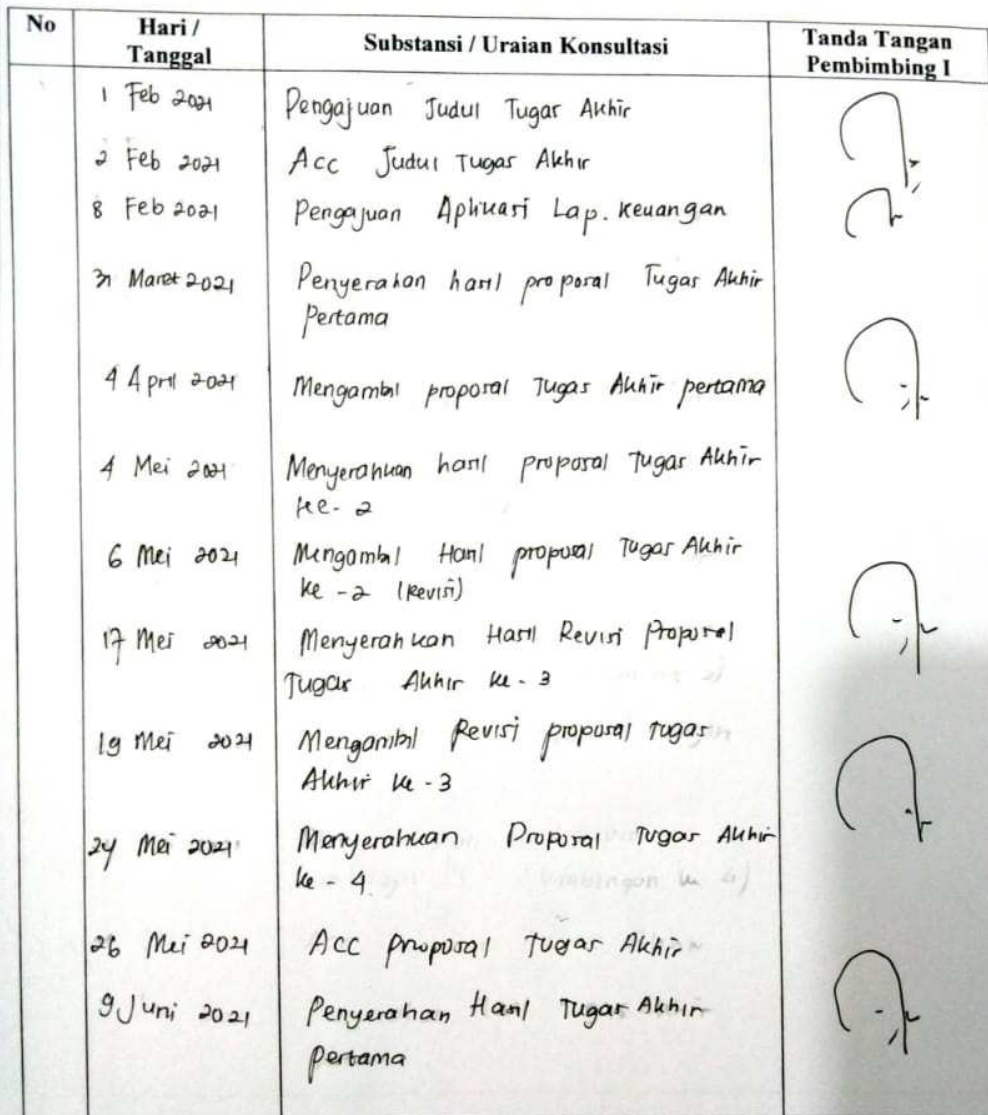 No Hari / Tanggal Substansi / Uraian Konsultasi Tanda Tangan Pembimbing I
1 Feb 2021 Pengajuan Judul Tugas Akhir
2 Feb 2021 Acc Judul Tugas Akhir
8 Feb 2021 Pengajuan Aplikasi Lap. Keuangan
31 Maret 2021 Penyerahan hasil proposal Tugas Akhir
Pertama
4 April 2021 Mengambil proposal Tugas Akhir pertama
4 Mei 2021 Menyerahkan hasil proposal Tugas Akhir
ke- 2
6 Mei 2021 Mengambil Hasil proposal Tugas Akhir
ke -2 (Revisi)
17 Mei 2021 Menyerahkan Hasil Revisi Proposal
Tugas Akhir ke - 3
19 Mei 2021 Mengambil Revisi proposal tugas
Akhir ke - 3
24 Mei 2021 Menyerahkan Proposal Tugas Akhir
ke - 4
26 Mei 2021 Acc proposal Tugas Akhir
9 Juni 2021 Penyerahan Hasil Tugas Akhir
Pertama